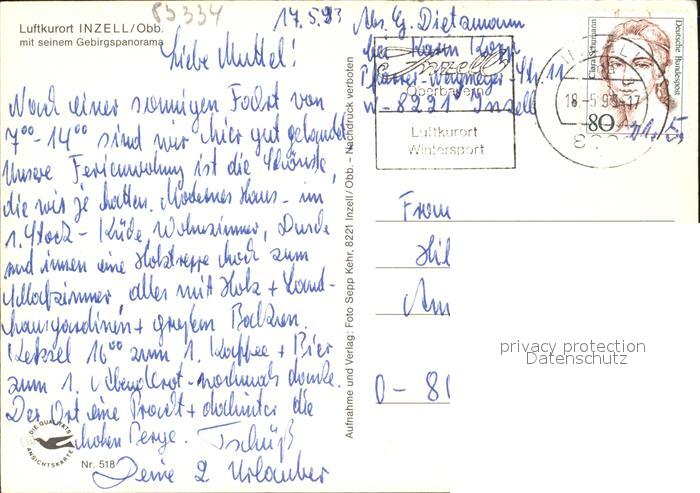 83334
Luftkurort INZELL/Obb.
mit seinem Gebirgspanorama
17.5.93
Liebe Muttel!
Nach einer sonnigen Fahrt von
7⁰⁰-14⁰⁰ sind wir hier gut gelandet
Unsere Ferienwohnung ist die Schönste,
die wir je hatten. Modernes Haus - im
1. Stock - Küche, Wohnzimmer, Dusche
und innen eine Holztreppe hoch zum
Schlafzimmer, alles mit Holz + Land-
hausgardinen + großem Balkon.
16⁰⁰ zum 1. Kaffee + Bier
zum 1. Abendbrot - nochmals danke.
Der Ort eine Pracht + dahinter die
hohen Berge. Tschüß
Deine 2 Urlauber
DIE QUALITÄTS
ANSICHTSKARTE
Nr. 518
Aufnahme und Verlag: Foto Sepp Kehr, 8221 Inzell/Obb. - Nachdruck verboten
Abs. G. Dietzmann
bei Karin
Pfarrer- Str. 11
W-8221 Inzell
Inzell
Oberbayern
Luftkurort
Wintersport
18.-5.93-17
Clara Schumann
Deutsche Bundespost
80
Frau
Hil
Am
O-81
privacy protection
Datenschutz